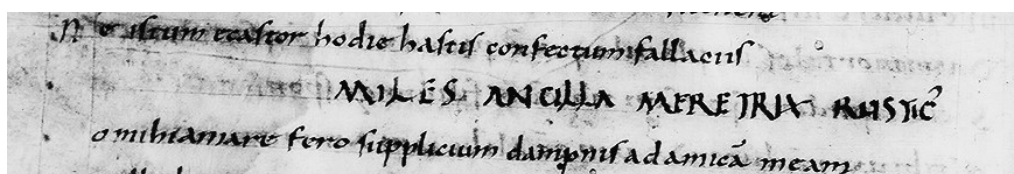 Ne istum ecastor hodie hastis confectum fallaciis
MILES ANCILLA MERETRIX RUSTIC
o mihi amare fero supplicium dampnis ad amicā meam